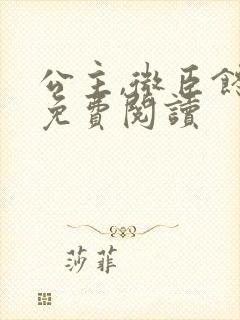 公主,微臣
免費閱讀
莎菲